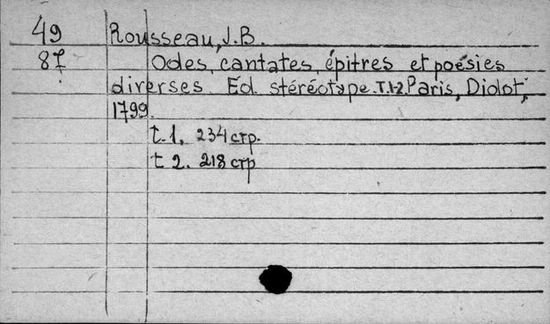 49 Rousseau, J.B.
87 Odes, cantates, épitres et poésies
diverses. Ed. stéréotype. T.1-2. Paris, Didot,
1799.
t. 1. 234 стр.
t 2. 218 стр